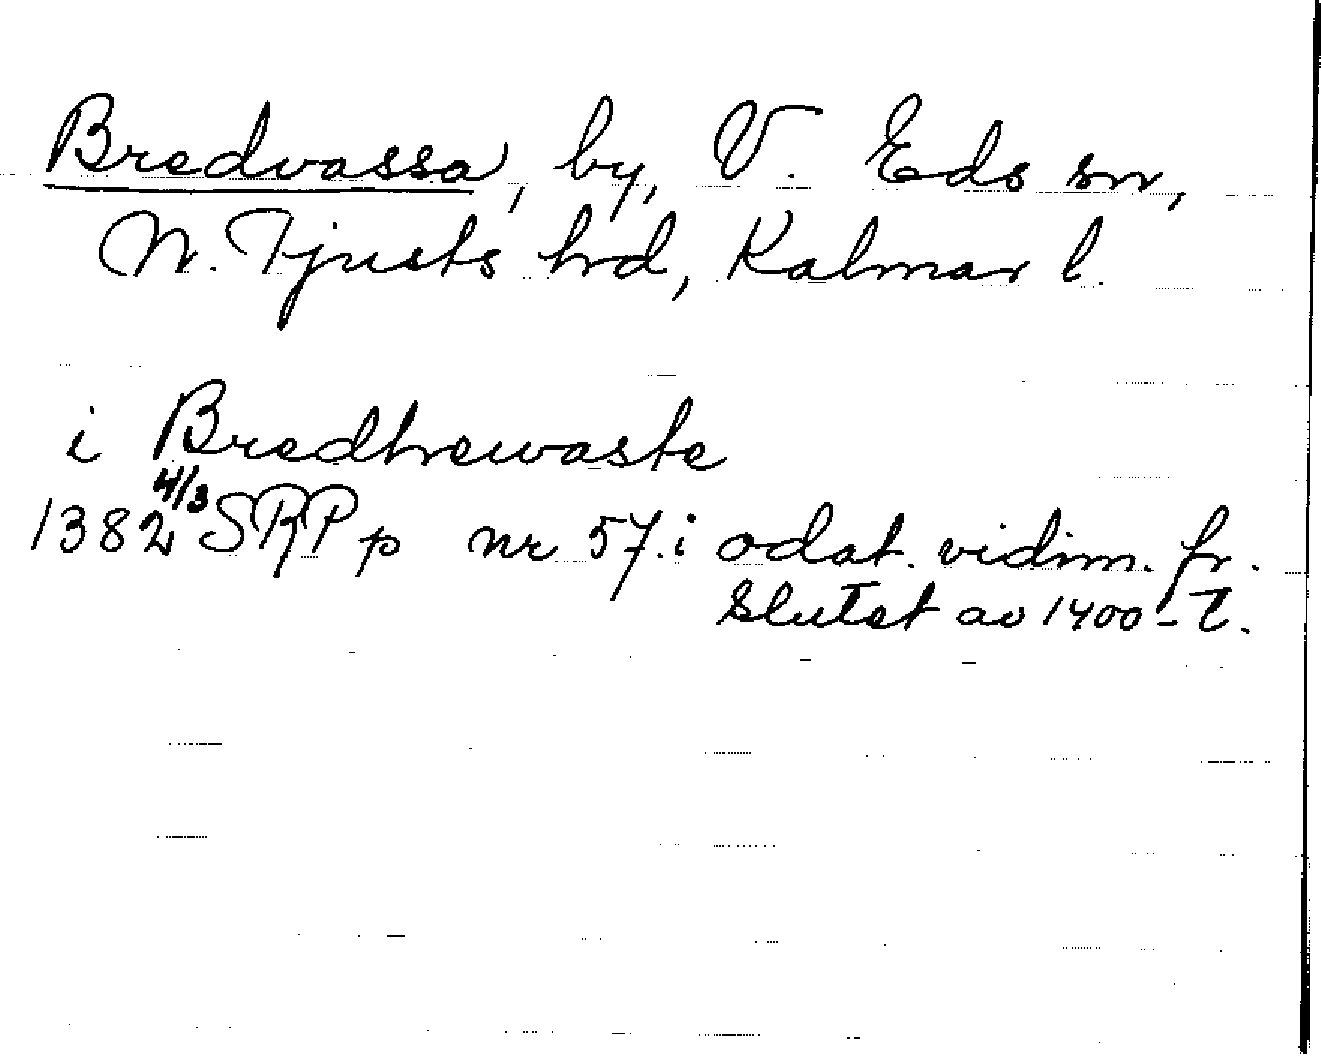 Bredvassa, by, V. Eds sn,
N. Tjusts hrd, Kalmar l.
i Bredhewaste
1382 4/3 SRP p nr 57. i odat. vidim. fr.
slutet av 1400-t.